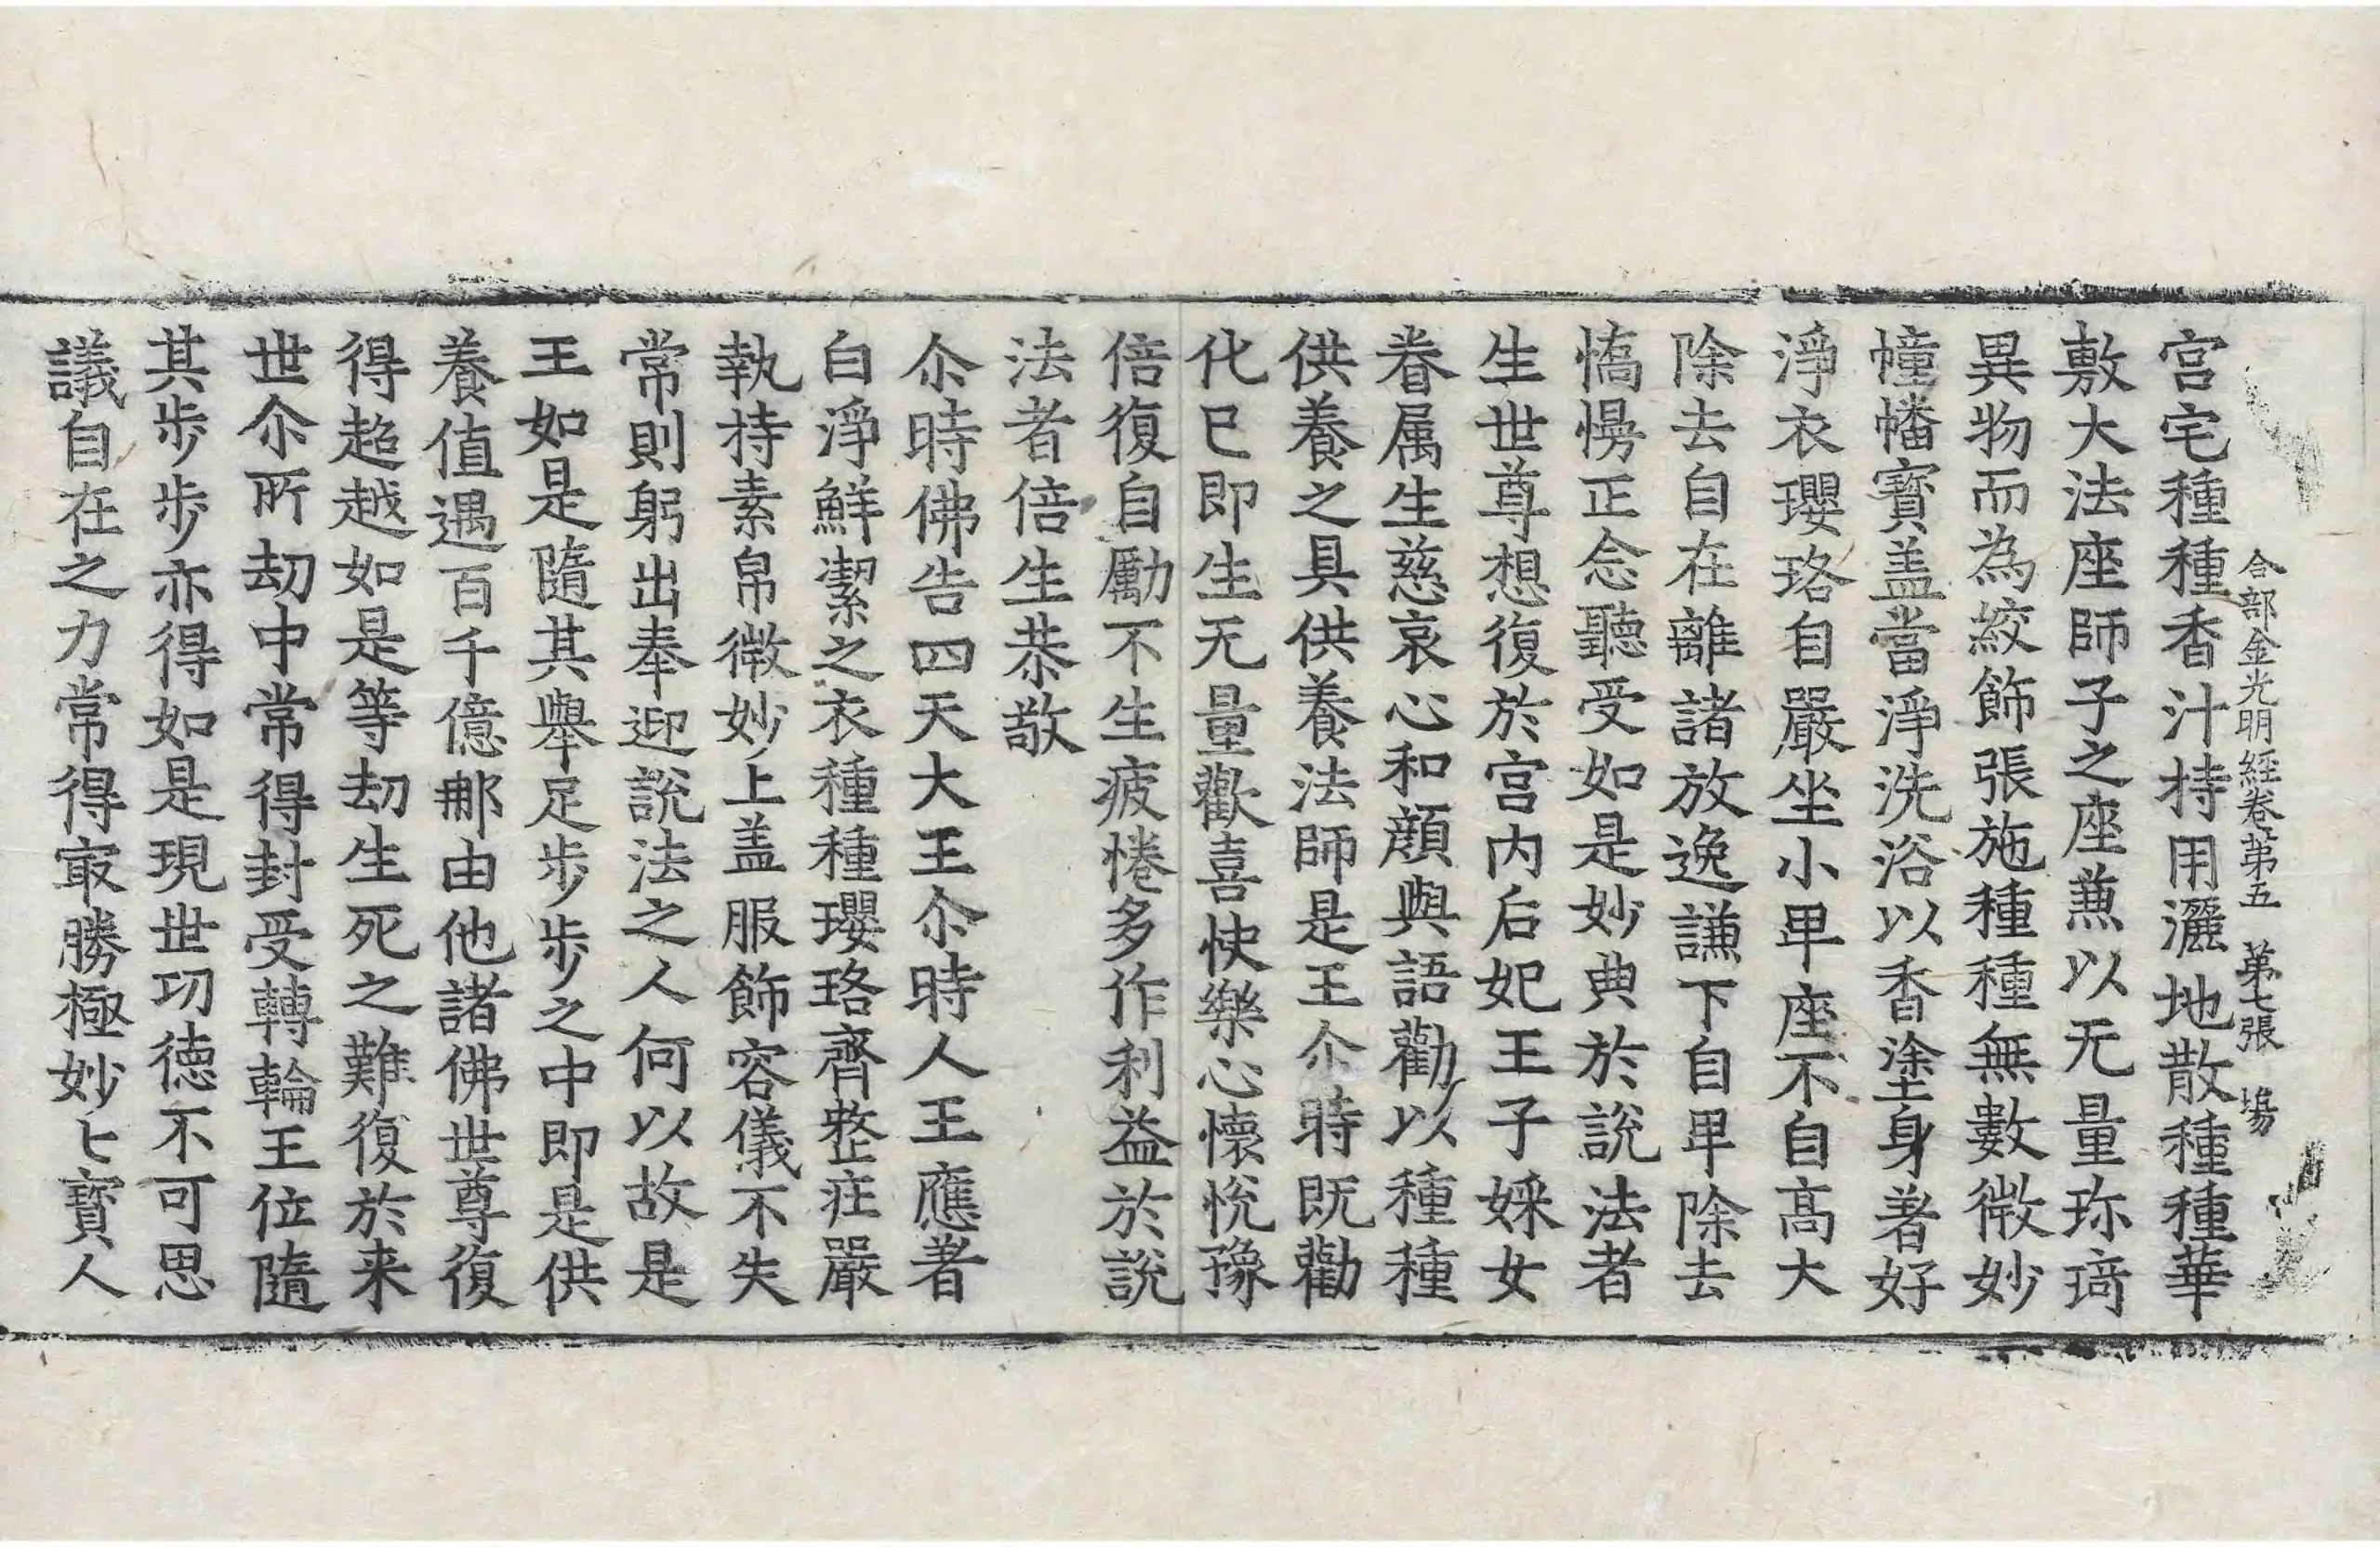 合部金光明経卷第五 第七張 塲
宮宅種種香汁持用灑地散種種華
敷大法座師子之座兼以无量珎琦
異物而為絞飾張施種種無數微妙
幢幡寶盖當淨洗浴以香塗身著好
淨衣瓔珞自嚴坐小卑座不自髙大
除去自在離諸放逸謙下自卑除去
憍慢正念聽受如是妙典於說法者
生世尊想復於宮内后妃王子婇女
眷属生慈哀心和顔與語勸以種種
供養之具供養法師是王尒時既勸
化已即生无量歡喜快樂心懷悅豫
倍復自勵不生疲惓多作利益於說
法者倍生恭敬
尒時佛告四天大王尒時人王應著
白淨鮮潔之衣種種瓔珞齊整庄嚴
執持素帛微妙上盖服飾容儀不失
常則躬出奉迎說法之人何以故是
王如是隨其舉足步步之中即是供
養值遇百千億那由他諸佛世尊復
得超越如是等劫生死之難復於来
世尒所劫中常得封受轉輪王位隨
其步步亦得如是現世功德不可思
議自在之力常得冣勝極妙七寶人